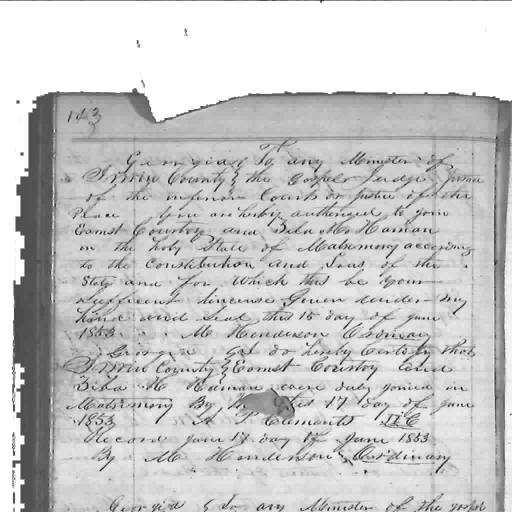 143
Georgia } To any Minister of
Irwin County } the Gospel Judge Justice
of the inferior Courts or Justice of the
Place you are hereby authorised to join
Earnst Courtoy and Bida M Haman
in the holy State of Matrimony according
to the Constitution and Laws of this
State and for which this be your
sufficient lincense Given under my
hand and seal this 15 day of June
1853 M Henderson Ordinary
Georgia } I do hereby Certify that
Irwin County } Earnst Courtoy and
Bida H Haman were duly joined in
Matrimony By me this 17 day of June
1853 Clements JIC
Record June 17 day of June 1853
By M Henderson Ordinary
Georgia } To any Minister of the gospel